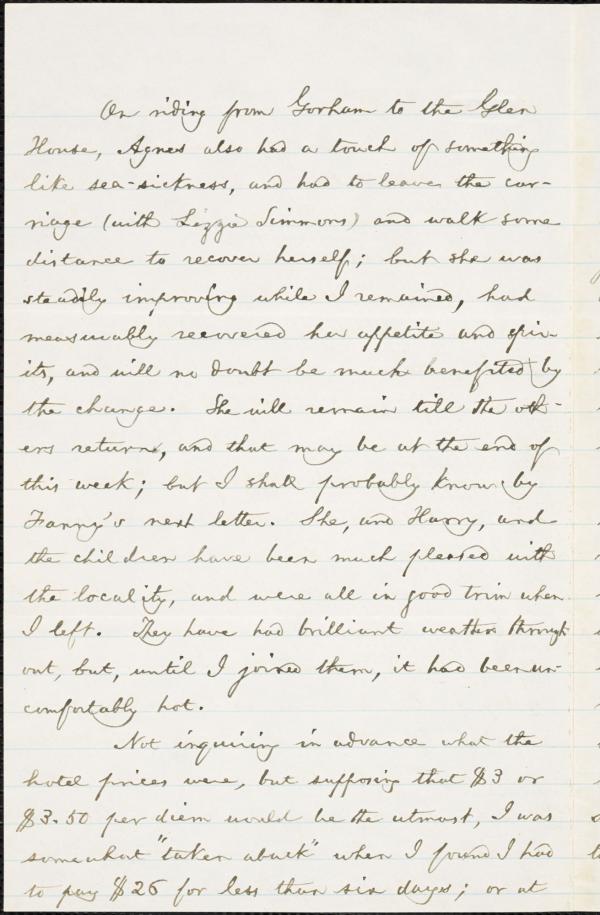 On riding from Gorham to the Glen
House, Agnes also had a touch of something
like sea-sickness, and had to leave the car-
riage (with Lizzie Simmons) and walk some
distance to recover herself; but she was
steadily improving while I remained, had
measurably recovered her appetite and spir-
its, and will no doubt be much benefited by
the change. She will remain till the oth-
ers return, and that may be at the end of
this week; but I shall probably know by
Fanny's next letter. She, and Harry, and
the children have been much pleased with
the locality, and were all in good trim when
I left. They have had brilliant weather through-
out, but, until I joined them, it had been un-
comfortably hot.
Not inquiring in advance what the
hotel prices were, but supposing that $3 or
$3.50 per diem would be the utmost, I was
somewhat "taken aback" when I found I had
to pay $26 for less than six days; or at